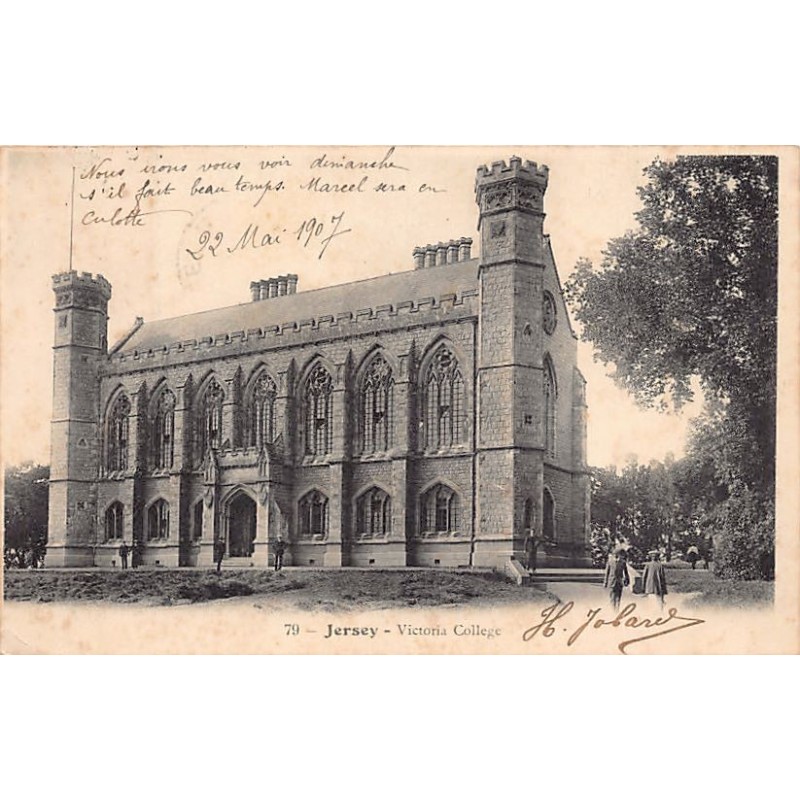 Nous irons vous voir dimanche
s'il fait beau temps. Marcel sera en
culotte
22 Mai 1907
79 - Jersey - Victoria College
H. Jobard